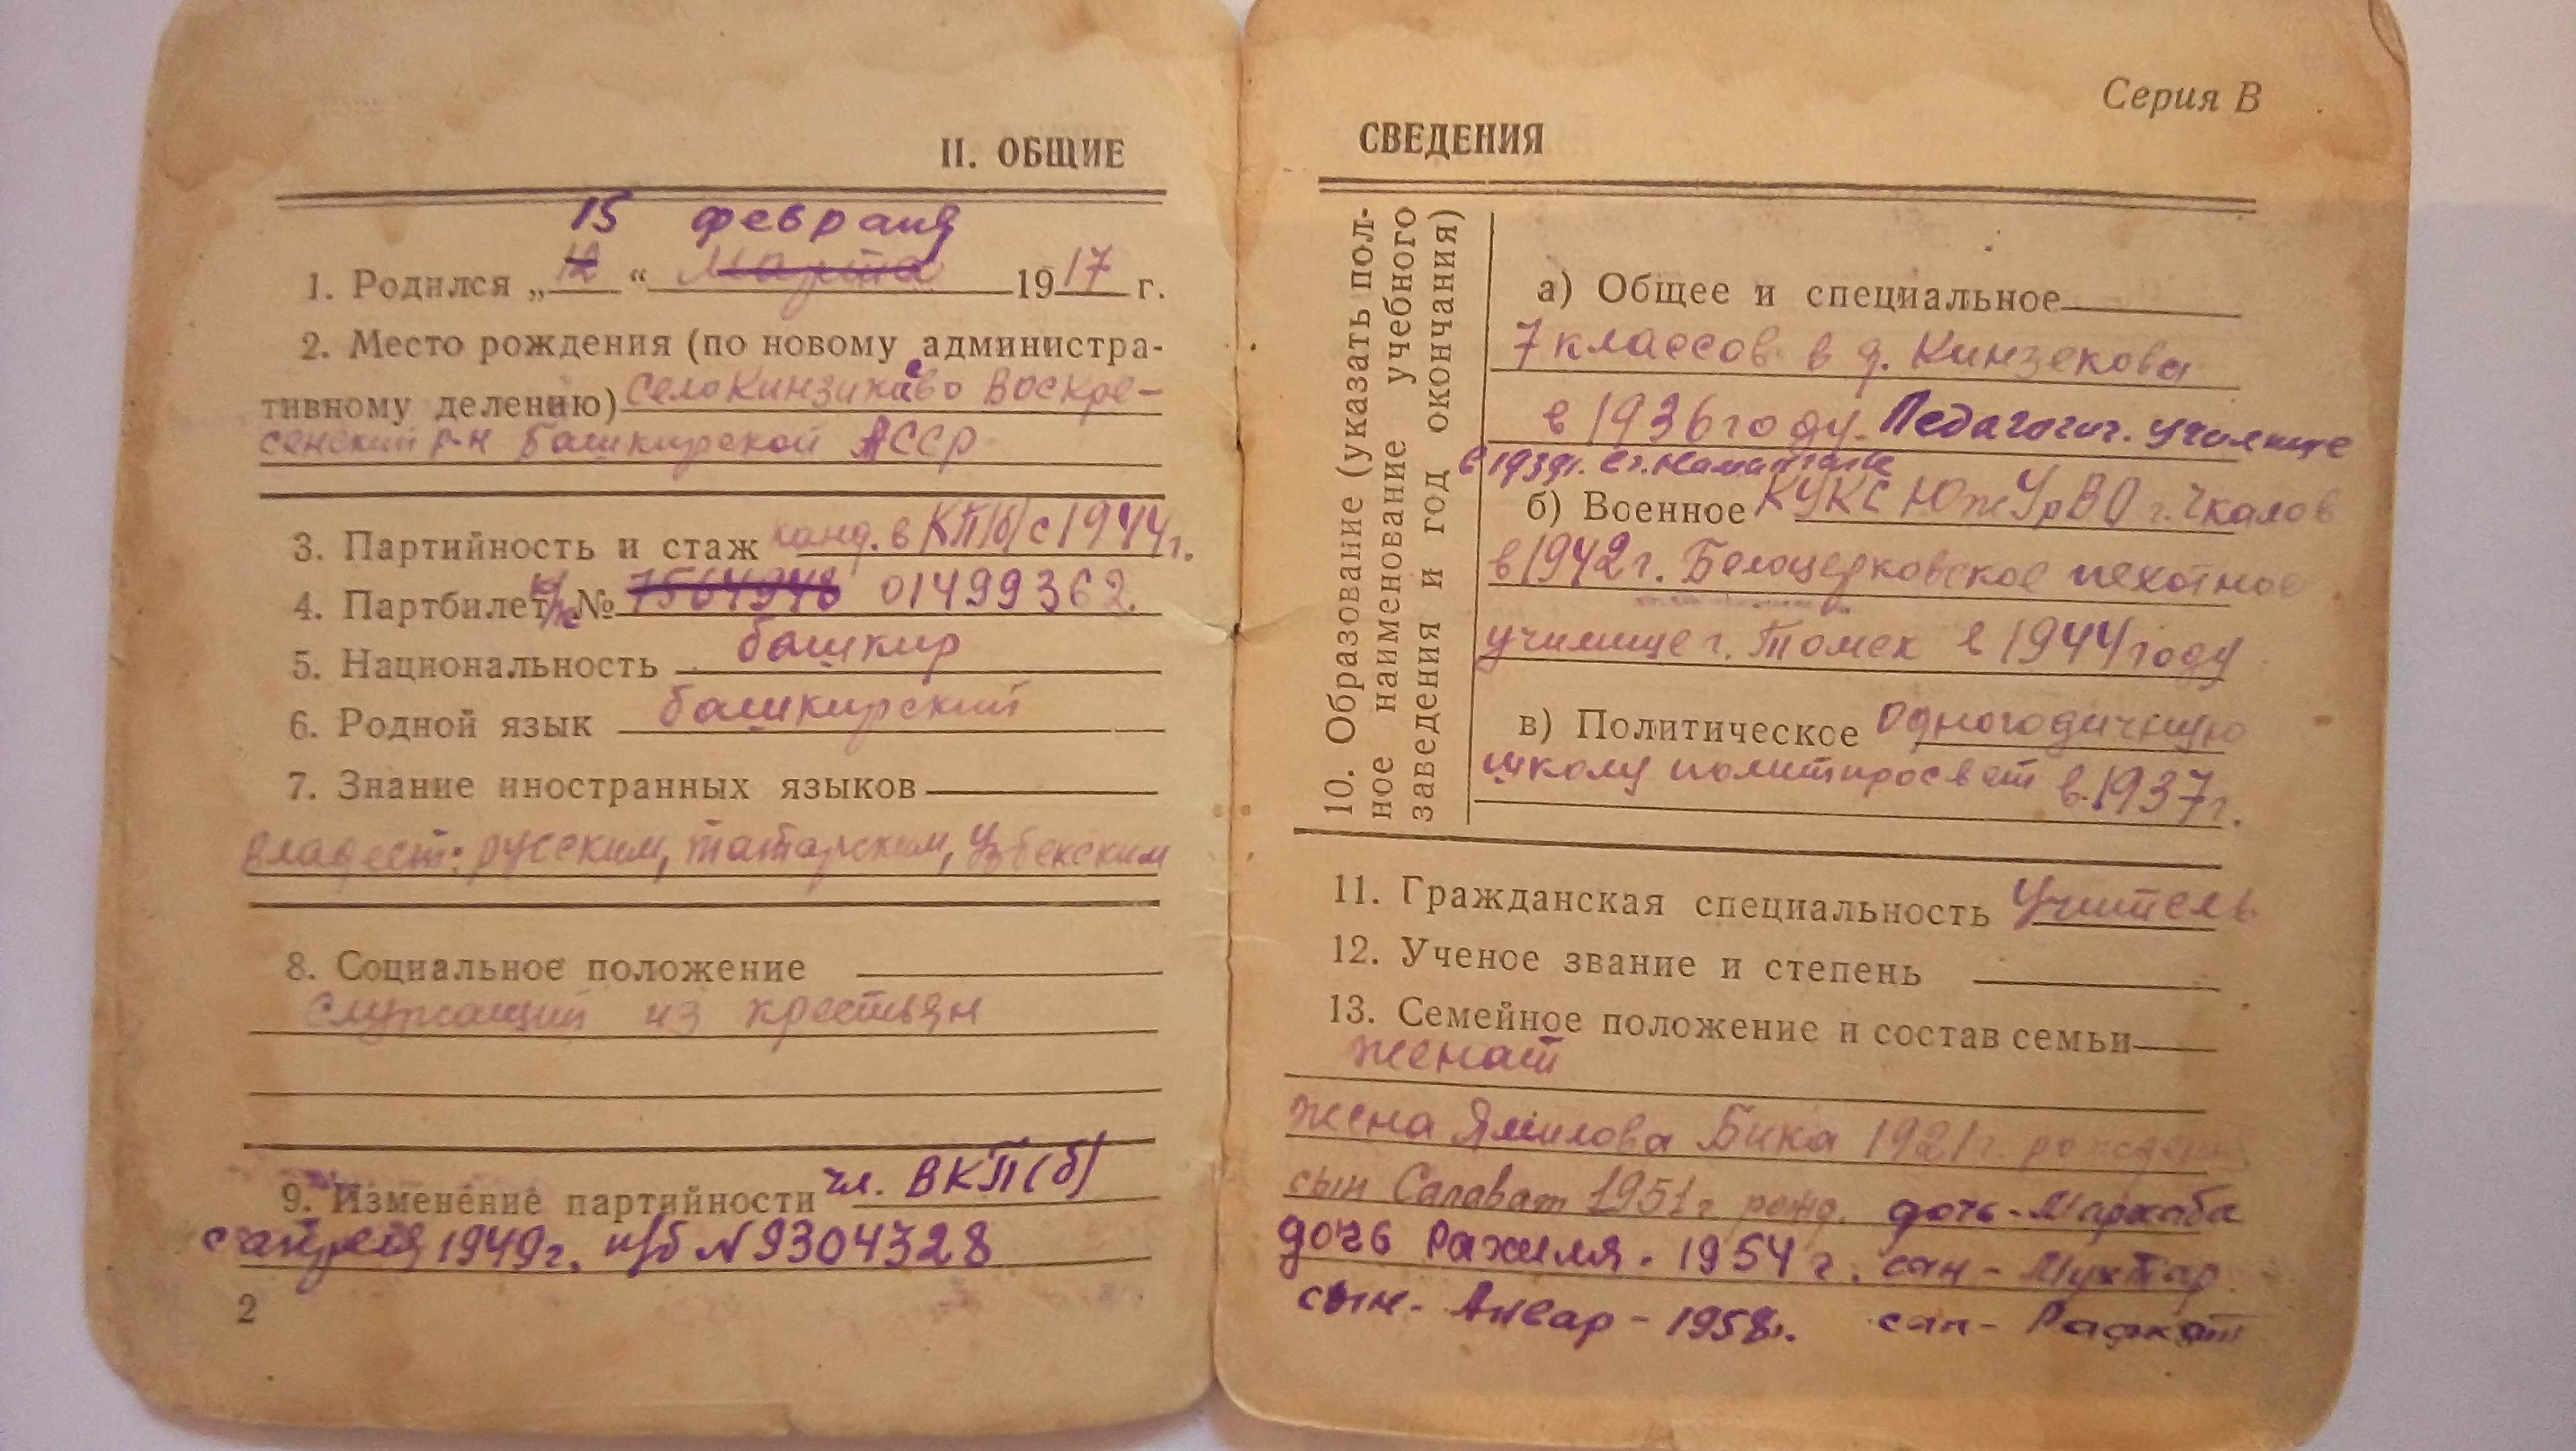 II. ОБЩИЕ
15 февраля
1. Родился „12“ Марта 1917 г.
2. Место рождения (по новому администра-
тивному делению) село Кинзикаево Воскре-
сенский р-н Башкирской АССР
3. Партийность и стаж канд. в КП/б/ с 1944 г.
4. Партбилет к/к № 7564948 01499362.
5. Национальность башкир
6. Родной язык башкирский
7. Знание иностранных языков
владеет: русским, татарским, Узбекским
8. Социальное положение
служащий из крестьян
9. Изменение партийности чл. ВКП(б)
с апреля 1949 г. п/б № 9304328
2
Серия В
СВЕДЕНИЯ
10. Образование (указать пол-
ное наименование учебного
заведения и год окончания)
а) Общее и специальное
7 классов в д. Кинзекова
в 1936 году. Педагогич. училище
в 1939 г. в г. Намангане
б) Военное КУКС ЮжУрВО г. Чкалов
в 1942 г. Белоцерковское пехотное
училище г. Томск в 1944 году
в) Политическое Одногодичную
школу политпросвет в 1937 г.
11. Гражданская специальность Учитель
12. Ученое звание и степень
13. Семейное положение и состав семьи
женат
жена Ямилова Бика 1921 г. рождения
сын Салават 1951 г рожд. дочь - Мархаба
дочь Рахиля. 1954 г. сын - Мухтар
сын - Анвар - 1958 г. сын - Рафкат